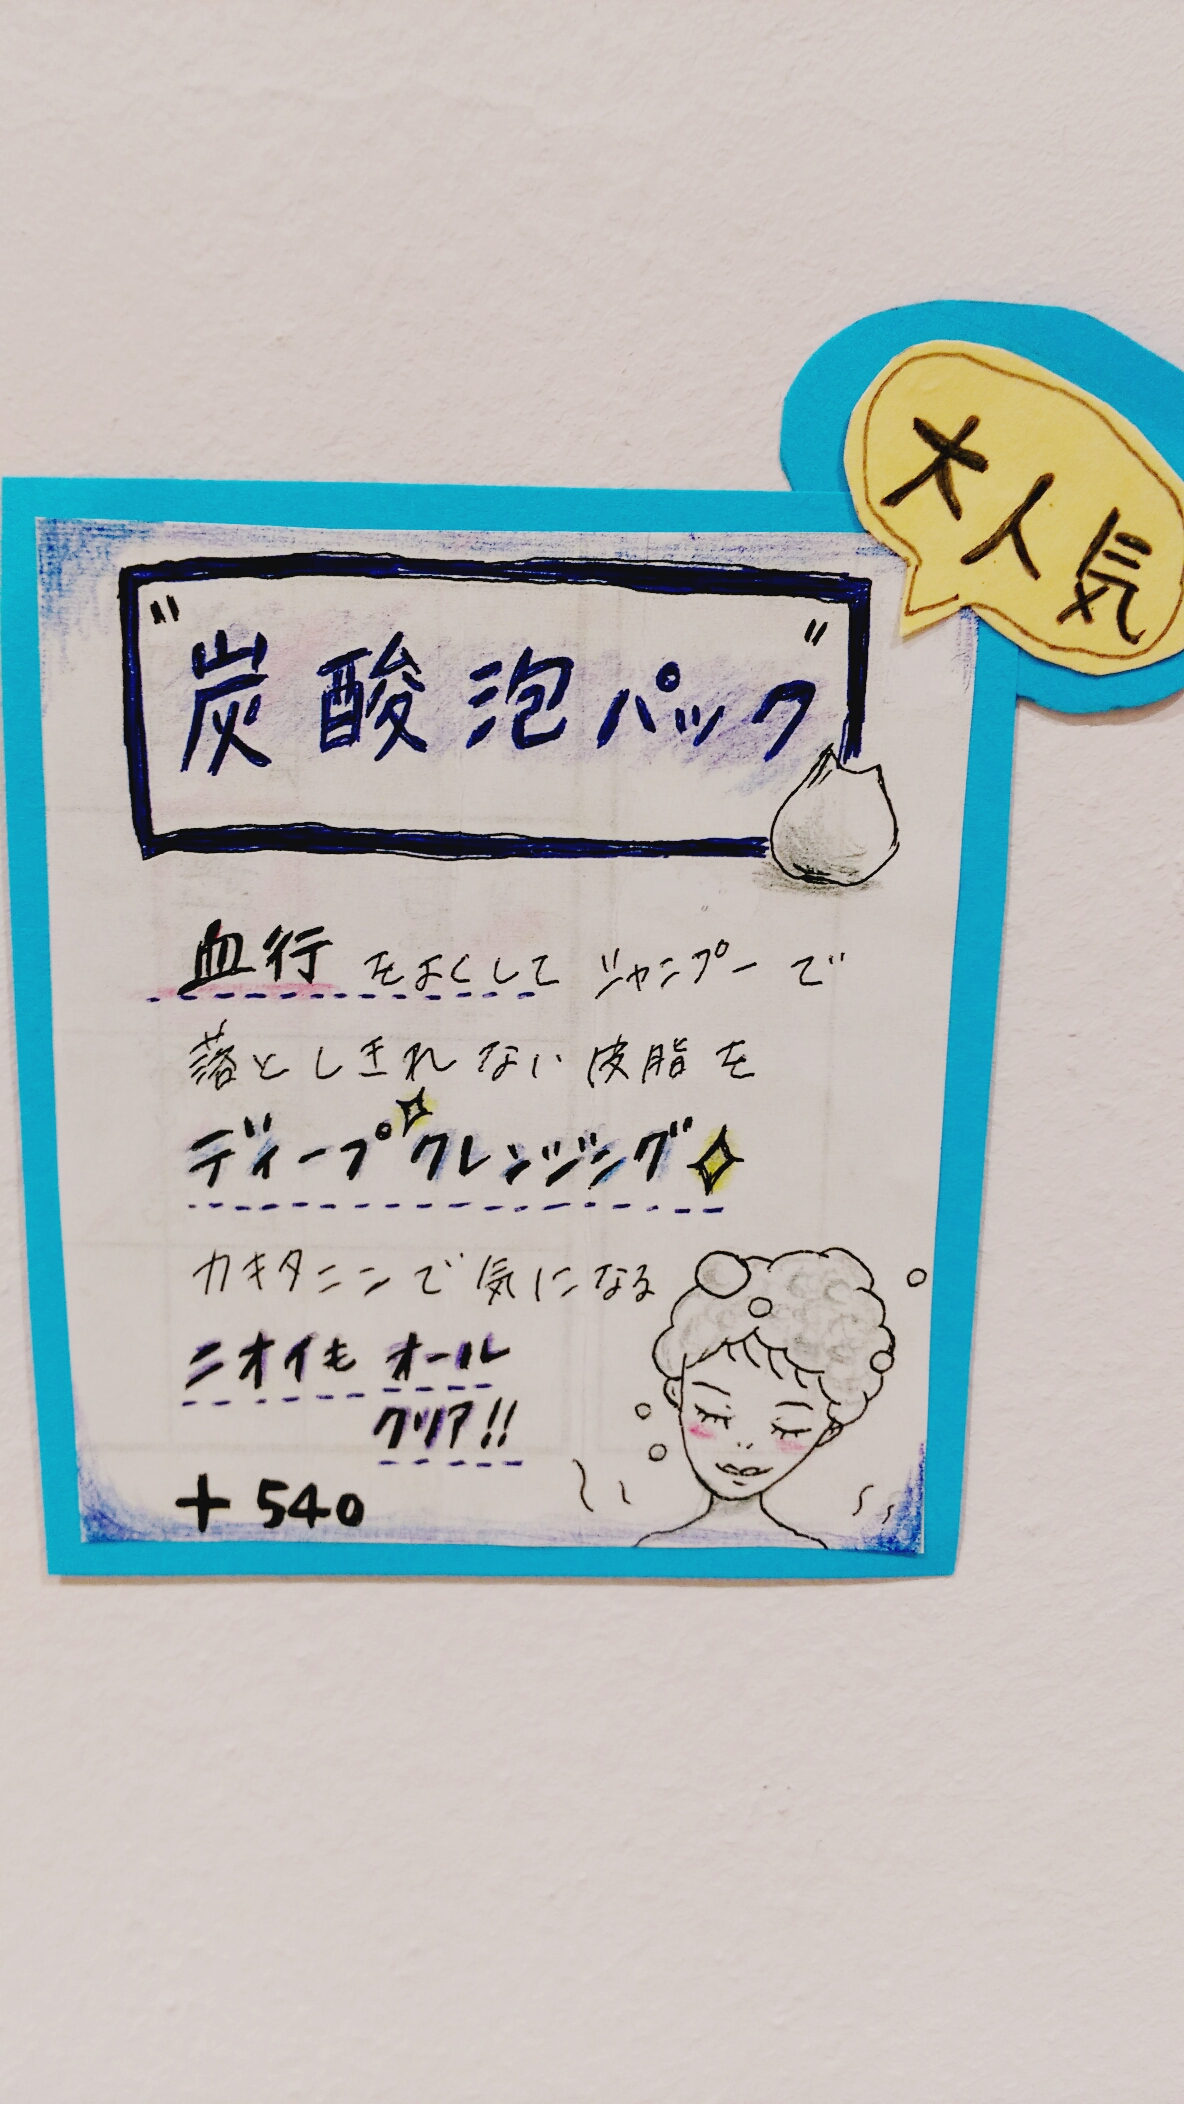 大人気
"炭酸泡パック"
血行をよくしてジャンプーで
落としきれない皮脂を
ディープクレンジング
カキタンニンで気になる
ニオイもオール
クリア!!
+540